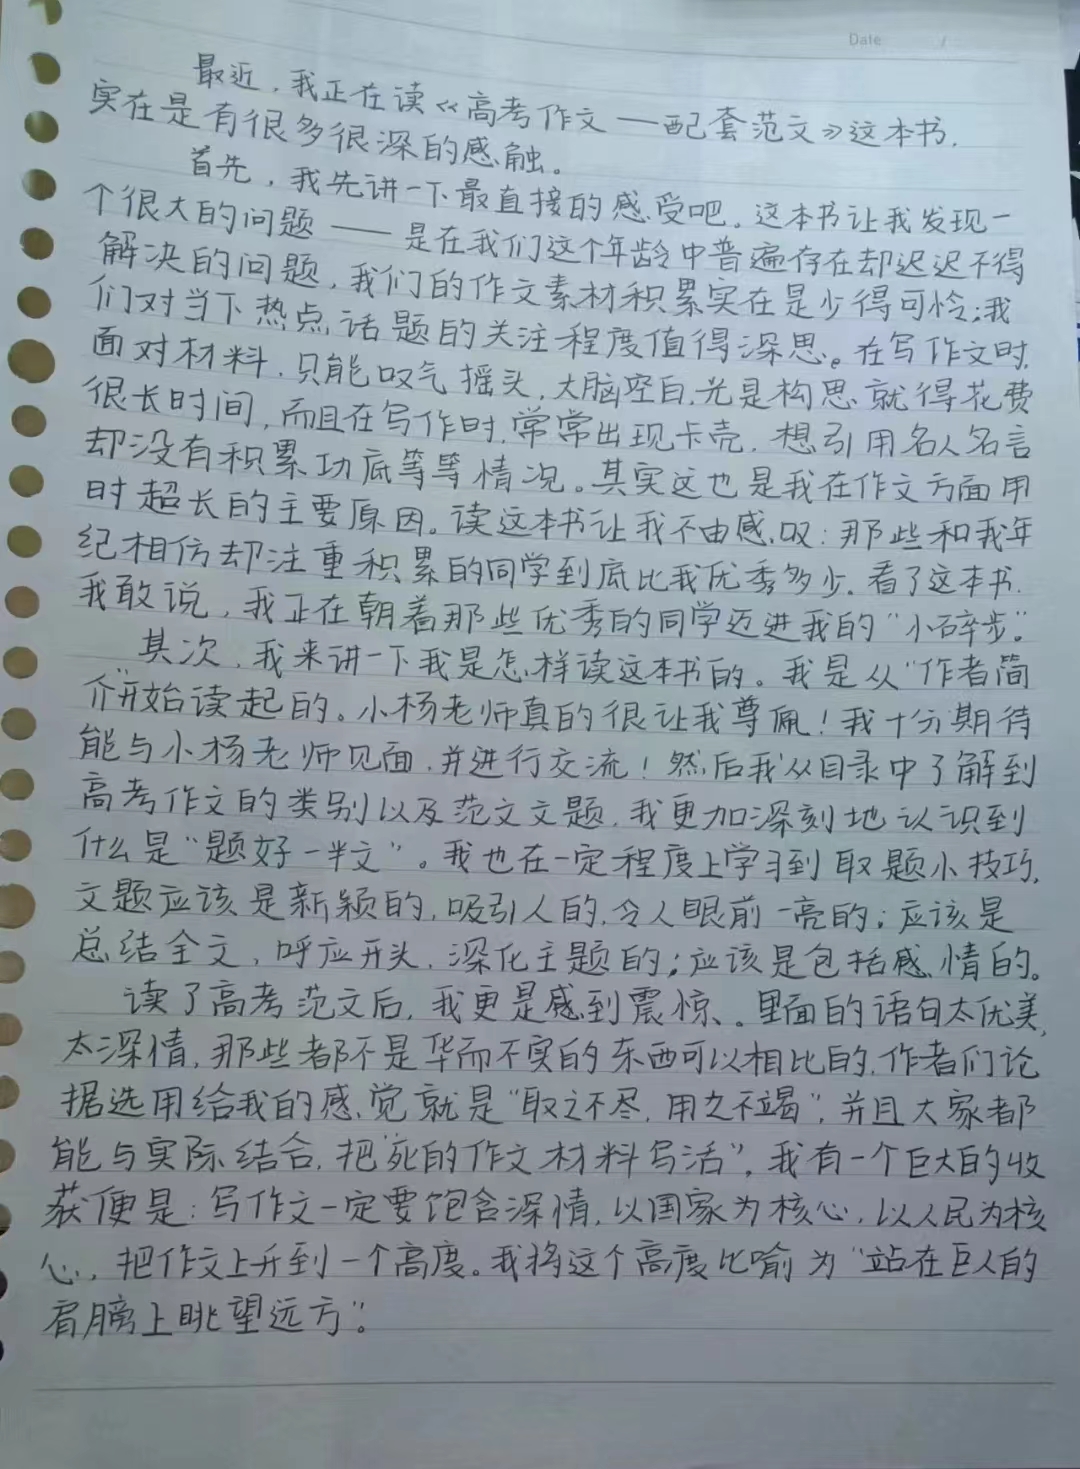 Date /
最近，我正在读《高考作文——配套范文》这本书，
实在是有很多很深的感触。
首先，我先讲一下最直接的感受吧。这本书让我发现一
个很大的问题——是在我们这个年龄中普遍存在却迟迟不得
解决的问题，我们的作文素材积累实在是少得可怜；我
们对当下热点话题的关注程度值得深思。在写作文时，
面对材料，只能叹气摇头，大脑空白，光是构思就得花费
很长时间，而且在写作时，常常出现卡壳，想引用名人名言
却没有积累功底等等情况。其实这也是我在作文方面用
时超长的主要原因。读这本书让我不由感叹：那些和我年
纪相仿却注重积累的同学到底比我优秀多少。看了这本书，
我敢说，我正在朝着那些优秀的同学迈进我的“小碎步”。
其次，我来讲一下我是怎样读这本书的。我是从“作者简
介”开始读起的。小杨老师真的很让我尊佩！我十分期待
能与小杨老师见面，并进行交流！然后我从目录中了解到
高考作文的类别以及范文文题，我更加深刻地认识到
什么是“题好一半文”。我也在一定程度上学习到取题小技巧，
文题应该是新颖的，吸引人的，令人眼前一亮的；应该是
总结全文，呼应开头，深化主题的；应该是包括感情的。
读了高考范文后，我更是感到震惊。里面的语句太优美，
太深情，那些都不是华而不实的东西可以相比的，作者们论
据选用给我的感觉就是“取之不尽，用之不竭”，并且大家都
能与实际结合，把“死的作文材料写活”，我有一个巨大的收
获便是：写作文一定要饱含深情，以国家为核心，以人民为核
心，把作文上升到一个高度。我将这个高度比喻为“站在巨人的
肩膀上眺望远方”。